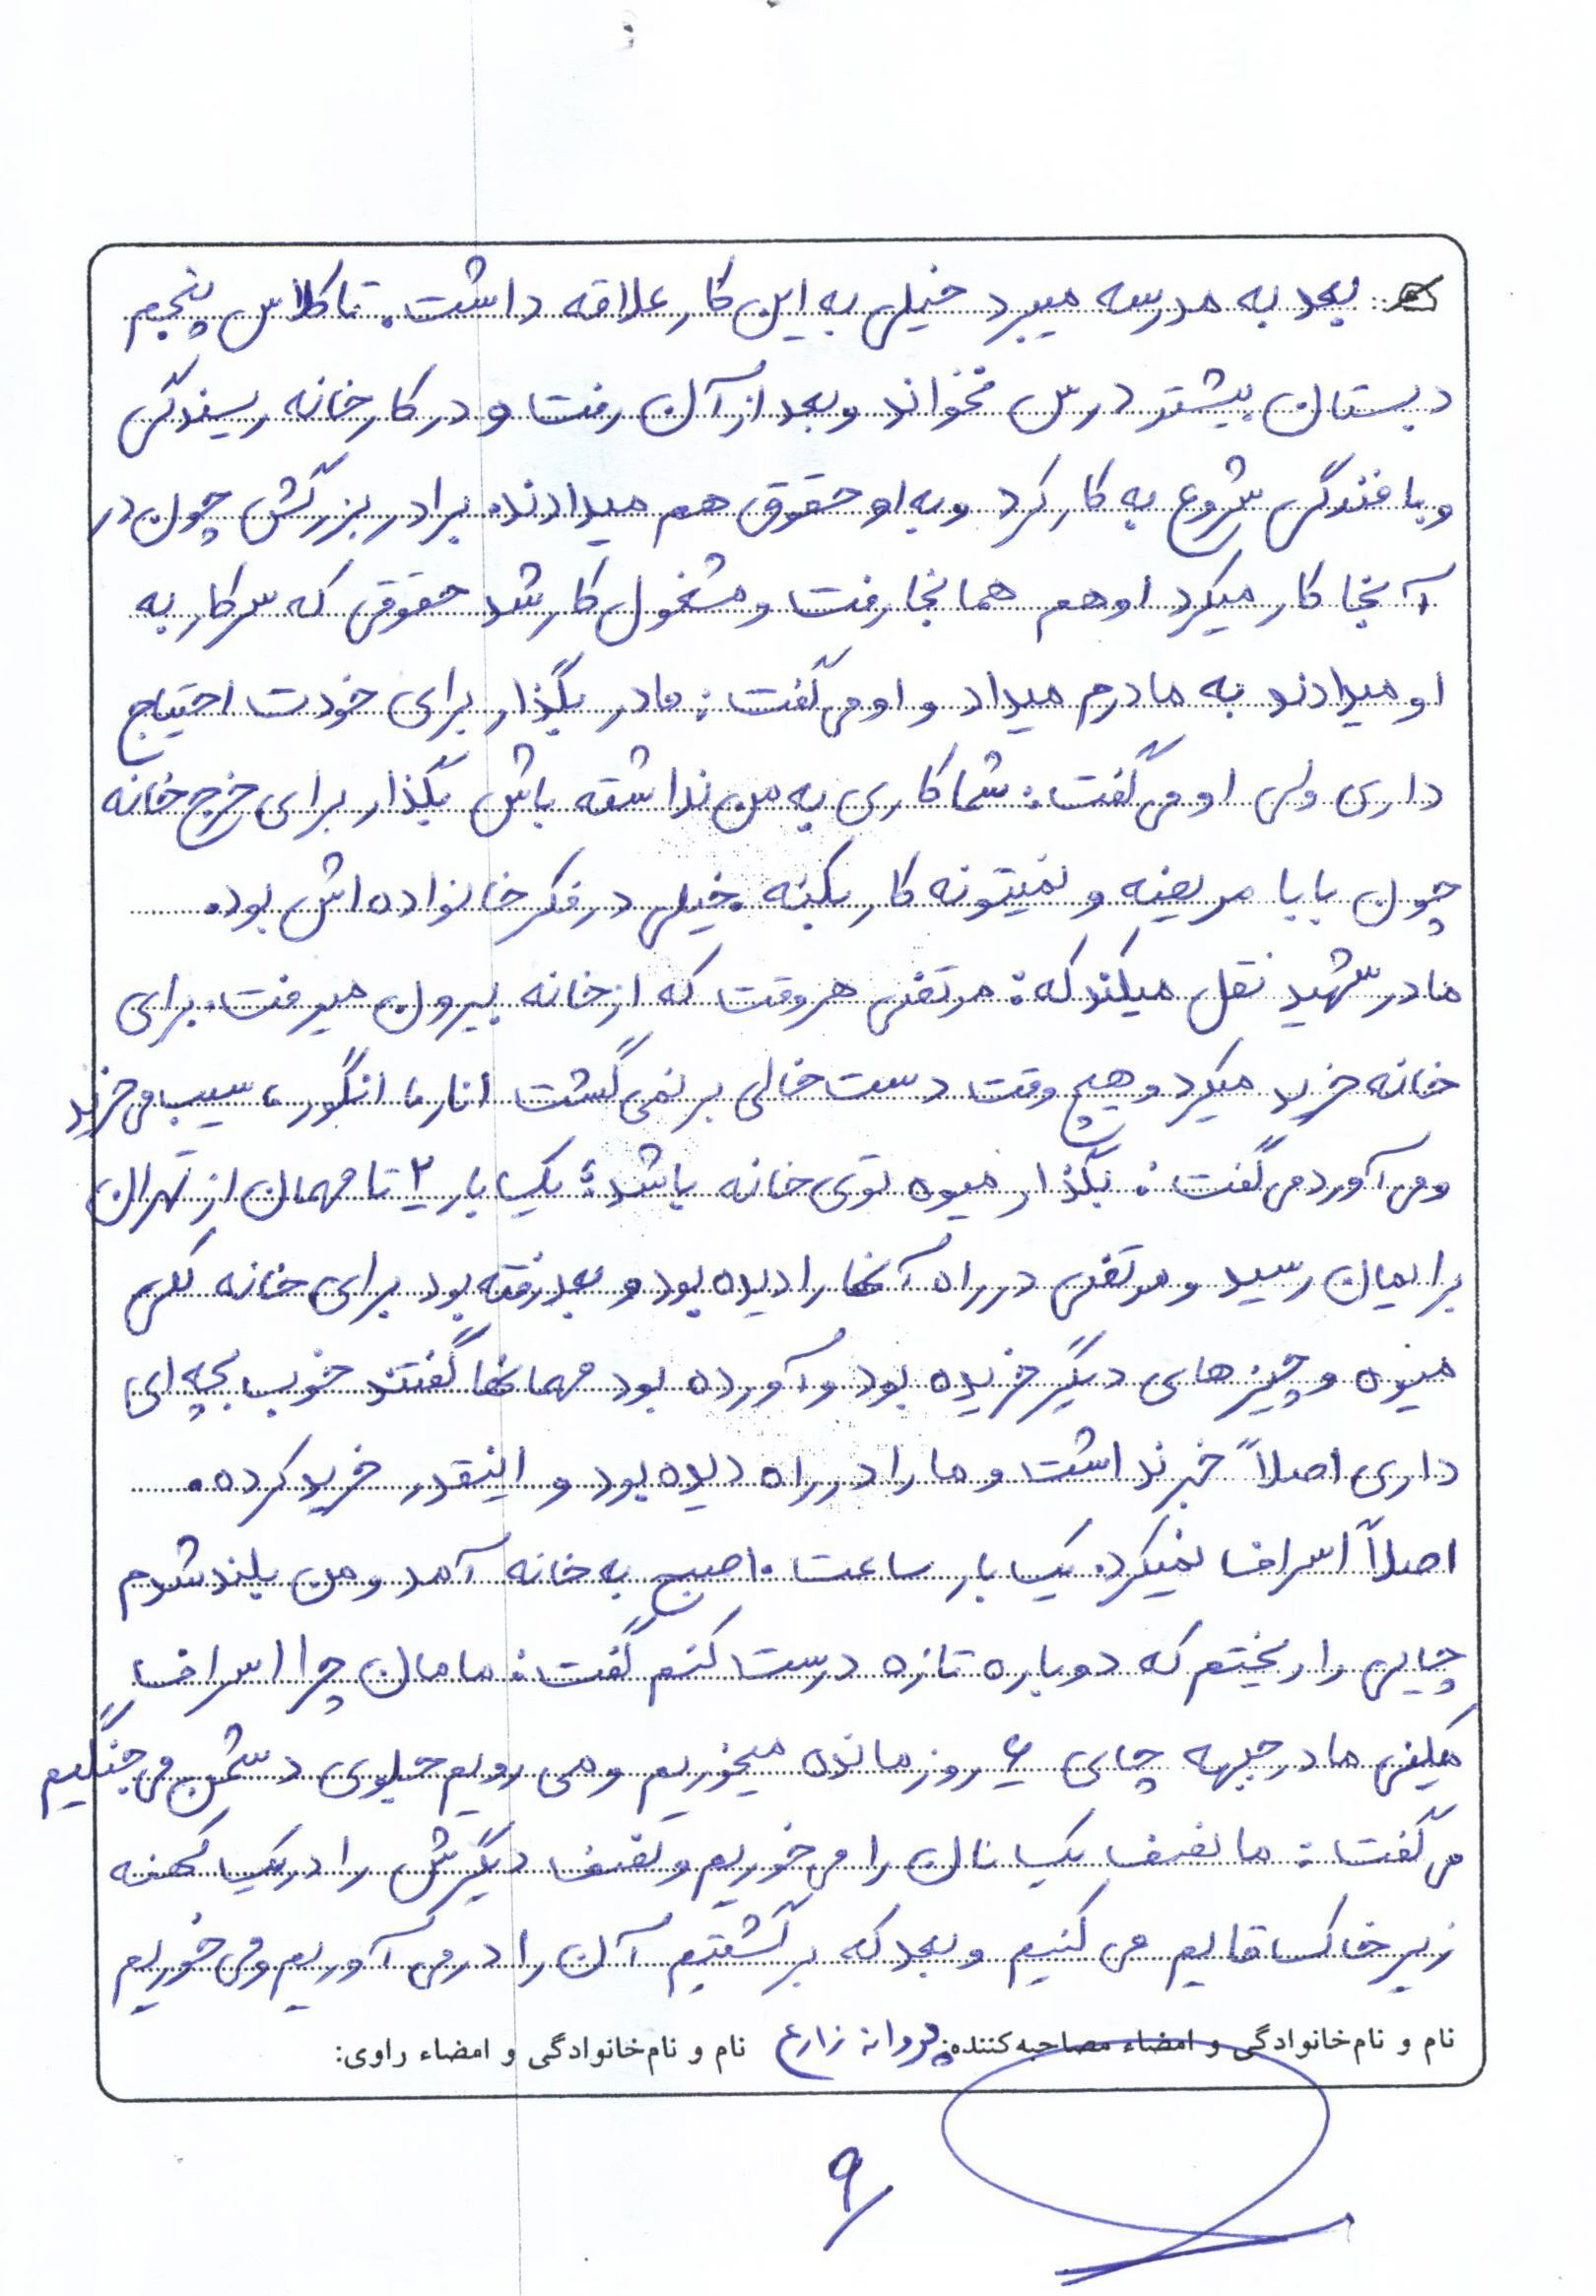 بعد به مدرسه میبرد خیلی به این کار علاقه داشت. تا کلاس پنجم
دبستان بیشتر درس نخواند و بعد از آن رفت و در کارخانه ریسندگی
و بافندگی شروع به کار کرد و به او حقوق هم میدادند. برادر بزرگش چون در
آنجا کار میکرد او هم همانجا رفت و مشغول کار شد حقوقی که سر کار به
او میدادند به مادرم میداد و او می گفت: مادر بگذار برای خودت احتیاج
داری ولی او می گفت: شما کاری به من نداشته باش بگذار برای خرج خانه
چون بابا مریضه و نمیتونه کار بکنه. خیلی در فکر خانواده اش بود.
مادر شهید نقل میکند که: مرتضی هر وقت که از خانه بیرون میرفت. برای
خانه خرید میکرد و هیچ وقت دست خالی بر نمی گشت انار، انگور، سیب می خرید
و می آورد می گفت: بگذار میوه توی خانه باشد؛ یک بار ۲ تا مهمان از تهران
برایمان رسید و مرتضی در راه آنها را دیده بود و بعد رفته بود برای خانه کلی
میوه و چیزهای دیگر خریده بود و آورده بود مهمانها گفتند خوب بچه ای
داری اصلاً خبر نداشت و ما را در راه دیده بود و اینقدر خرید کرده.
اصلاً اسراف نمیکرد. یک بار ساعت ۱۰ صبح به خانه آمد و من بلند شدم
چایی را ریختم که دوباره تازه درست کنم گفت: مامان چرا اسراف
میکنی ما در جبهه چای ۶ روز مانده میخوریم و می رویم جلوی دشمن می جنگیم
می گفت: ما نصف یک نان را می خوریم و نصف دیگرش را در یک کهنه
زیر خاک قایم می کنیم و بعد که برگشتیم آن را در می آوریم و می خوریم
نام و نام خانوادگی و امضاء مصاحبه کننده: پروانه زارع نام و نام خانوادگی و امضاء راوی:
۹